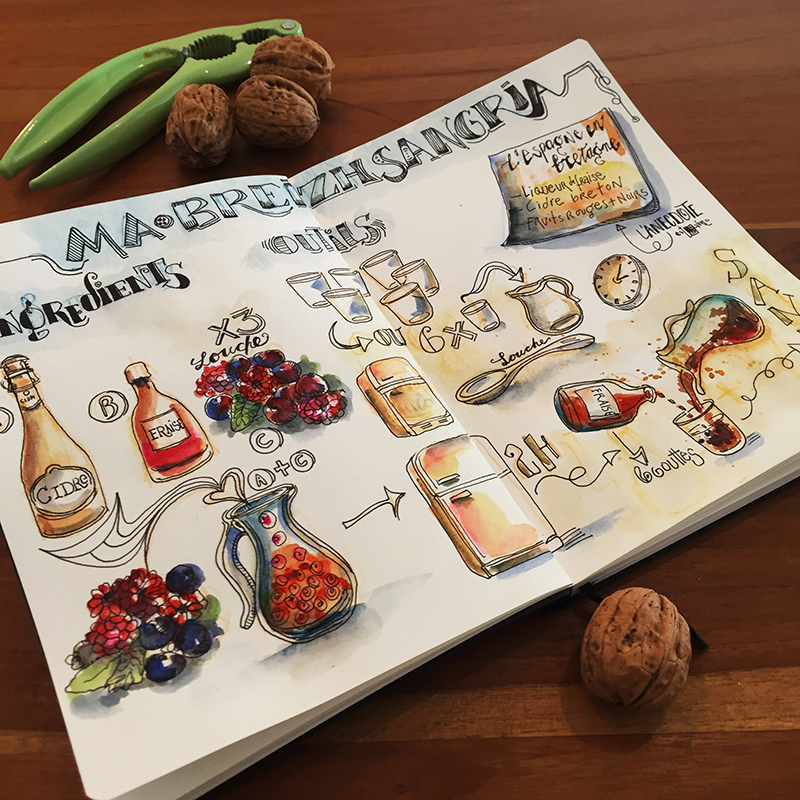 MA BREIZH SANGRIA
L'ESPAGNE EN
BRETAGNE
- LIQUEUR de FRAISE
- CIDRE BRETON
- FRUITS ROUGES + NOIRS
L'ANECDOTE
OUTILS
INGREDIENTS
X3
Louche
OU 6X
Louche
B
FRAISE
C
CIDRE
A+C
2H
FRAISE
6 Gouttes
SAN